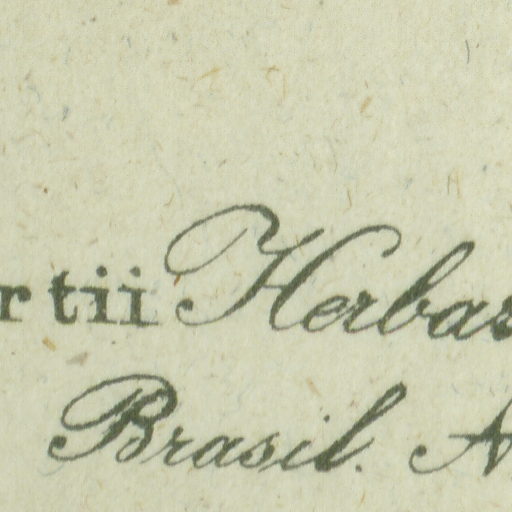 rtii Herbar
Brasil. N